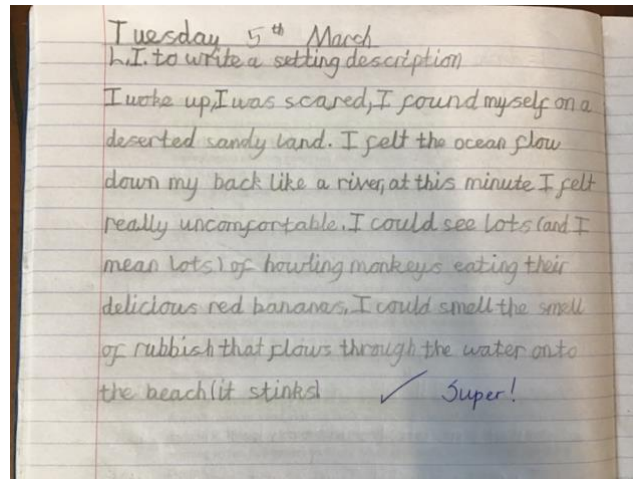 Tuesday 5th March
L.I. to write a setting description
I woke up, I was scared, I found myself on a
deserted sandy land. I felt the ocean flow
down my back like a river, at this minute I felt
really uncomfortable. I could see lots (and I
mean lots) of howling monkeys eating their
delicious red bananas. I could smell the smell
of rubbish that flows through the water onto
the beach (it stinks)
✓ Super!